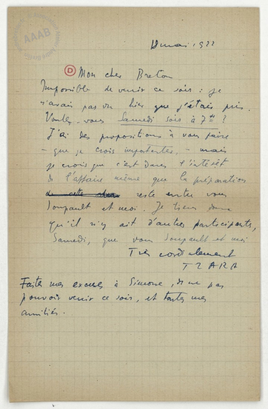 AAAB
10 mai 1922
Mon cher Breton
Impossible de venir ce soir : je
n'avais pas vu hier que j'étais pris.
Voulez-vous Samedi soir à 7h ?
J'ai des propositions à vous faire
- que je crois importantes, - mais
je crois que c'est dans l'intérêt
de l'affaire même que la préparation
reste entre vous
Soupault et moi. Je tiens donc
qu'il n'y ait d'autres participants,
Samedi, que vous Soupault et moi
Très cordialement
TZARA
Faites mes excuses à Simone, de ne pas
pouvoir venir ce soir, et toutes mes
amitiés.